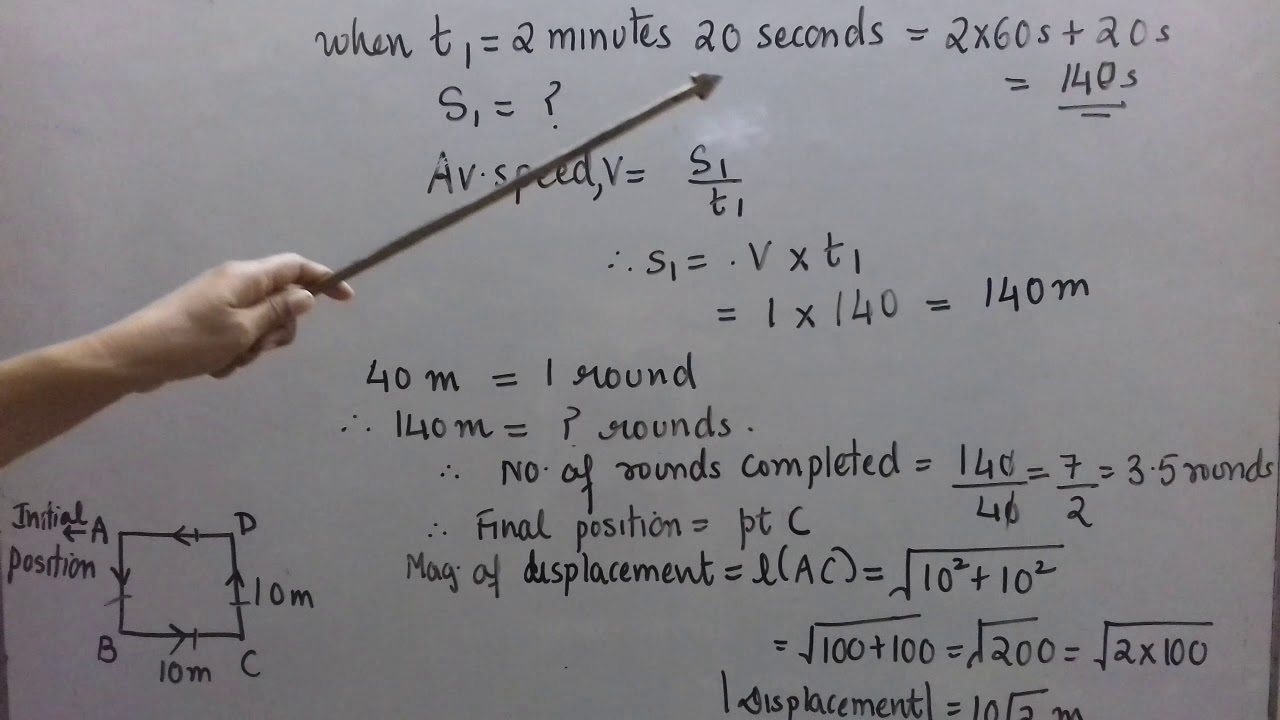 when t₁ = 2 minutes 20 seconds = 2×60s + 20s
= 140s
S₁ = ?
Av. speed, V = S₁/t₁
∴ s₁ = . V × t₁
= 1 × 140 = 140m
40 m = 1 round
∴ 140 m = ? rounds.
∴ No. of rounds completed = 140/40 = 7/2 = 3.5 rounds
∴ Final position = pt C
Mag. of displacement = l(AC) = √(10² + 10²)
= √(100+100) = √200 = √(2×100)
|Displacement| = 10√2 m
Initial ← A D
position
10m
B C
10m